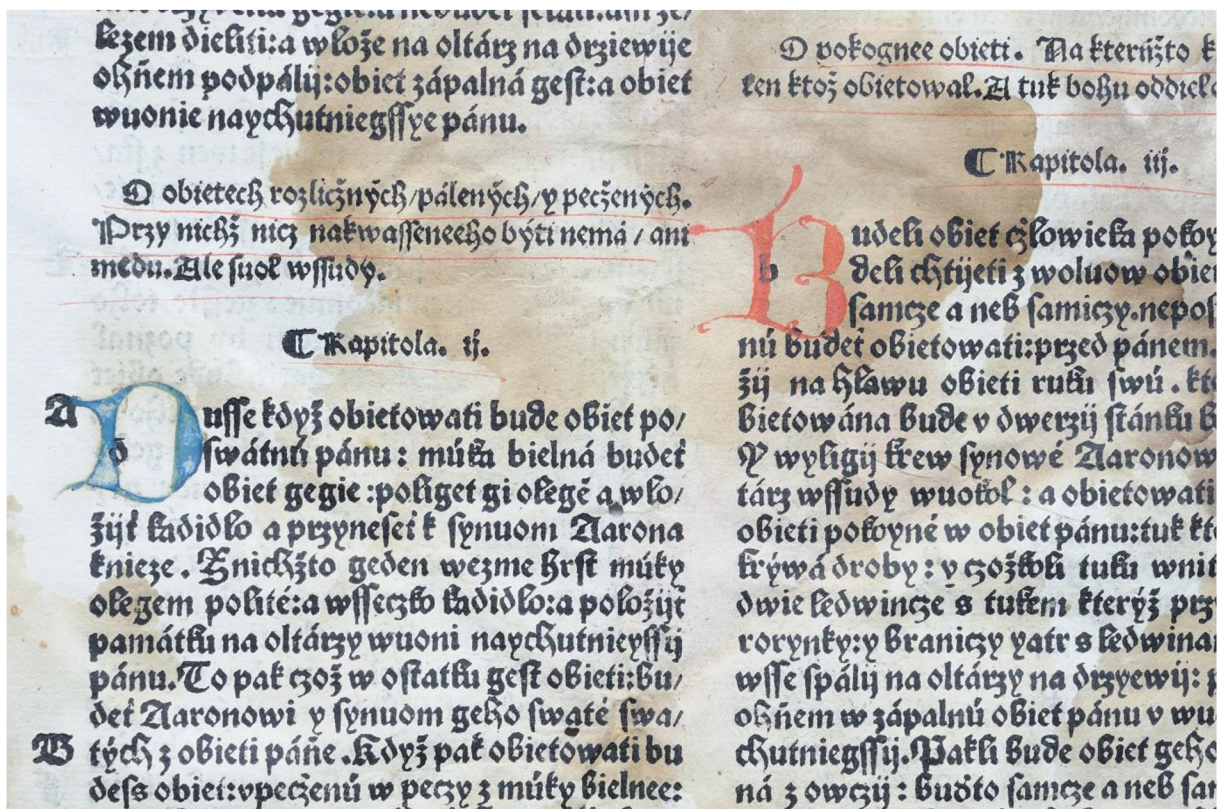 lezem dieliti:a wlože na oltárz na drziewije
ohňem podpálij:obiet zápalná gest:a obiet
wuonie naychutniegssye pánu.
O obietech rozličných/pálených/y pečzených.
Przy nichž nicz nakwasseneeho býti nemá / ani
medu. Ale suol wssudy.
¶ Kapitola. ij.
A
Dusse když obietowati bude obiet po/
d
swátnú pánu : múka bielná budet
obiet gegie :poliget gi olegē a wlo/
žijť kadidlo a przyneseť k synuom Aarona
knieze . Z nichžto geden wezme hrst múky
olegem polité:a wsseczko kadidlo:a položijť
památku na oltárzy wuoni naychutnieyssij
pánu. To pak czož w ostatku gest obieti:bu/
deť Aaronowi y synuom geho swaté swa/
B
tých z obieti páňe . Když pak obietowati bu
deš obiet:vpečzenú w peczy z múky bielnee:
O pokognee obieti. Na kterúžto k
ten ktož obietowal. A tuk bohu oddiel
¶ Kapitola. iij.
Budeli obiet człowieka pokoy
b
deli chtijeti z woluow obie
samcze a neb samiczy.nepos
nú budeť obietowati:przed pánem.
žij na hlawu obieti ruku swú . kt
bietowána bude v dwerzij stánku b
Y wyligij krew synowé Aaronow
tárz wssudy wuokol : a obietowati
obieti pokoyné w obiet pánu:tuk kt
krýwá droby : y czožkoli tuku wnit
dwie ledwincze s tukem kterýž prz
rorynky:y braniczy yatr s ledwina
wsse spálij na oltárzy na drzyewij:
ohňem w zápalnú obiet pánu v wu
chutniegssij. Pakli bude obiet geho
ná z owczij : buďto samcze a neb sam